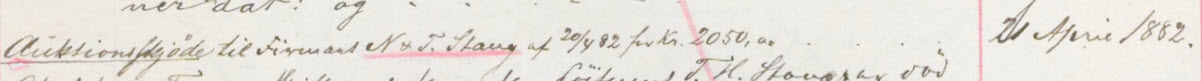 ner dat: og
Auktionsskjöde til Firmaet N & T. Stang af 20/4 82 for Kr. 2050,00 . . . . . 21 April 1882.
T. H. Stang